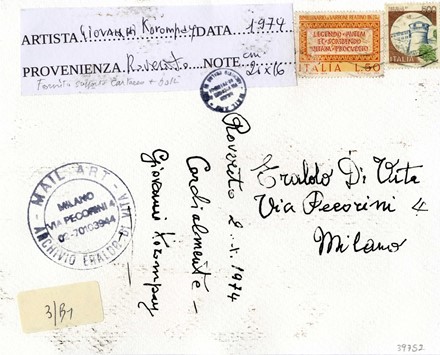 ARTISTA Giovanni Korompay DATA 1974
PROVENIENZA Rovereto NOTE cm 21x16
LEGENDO
ITALIA L.50
500
ITALIA
Rovereto 2
1974
Cordialmente -
Giovanni Korompay
Eraldo Di Vita
Via Pecorini 4
Milano
MAIL ART - VITA
MILANO
VIA PECORINI 4
02-70103944
ARCHIVIO ERALDO DI
3/B1
39752